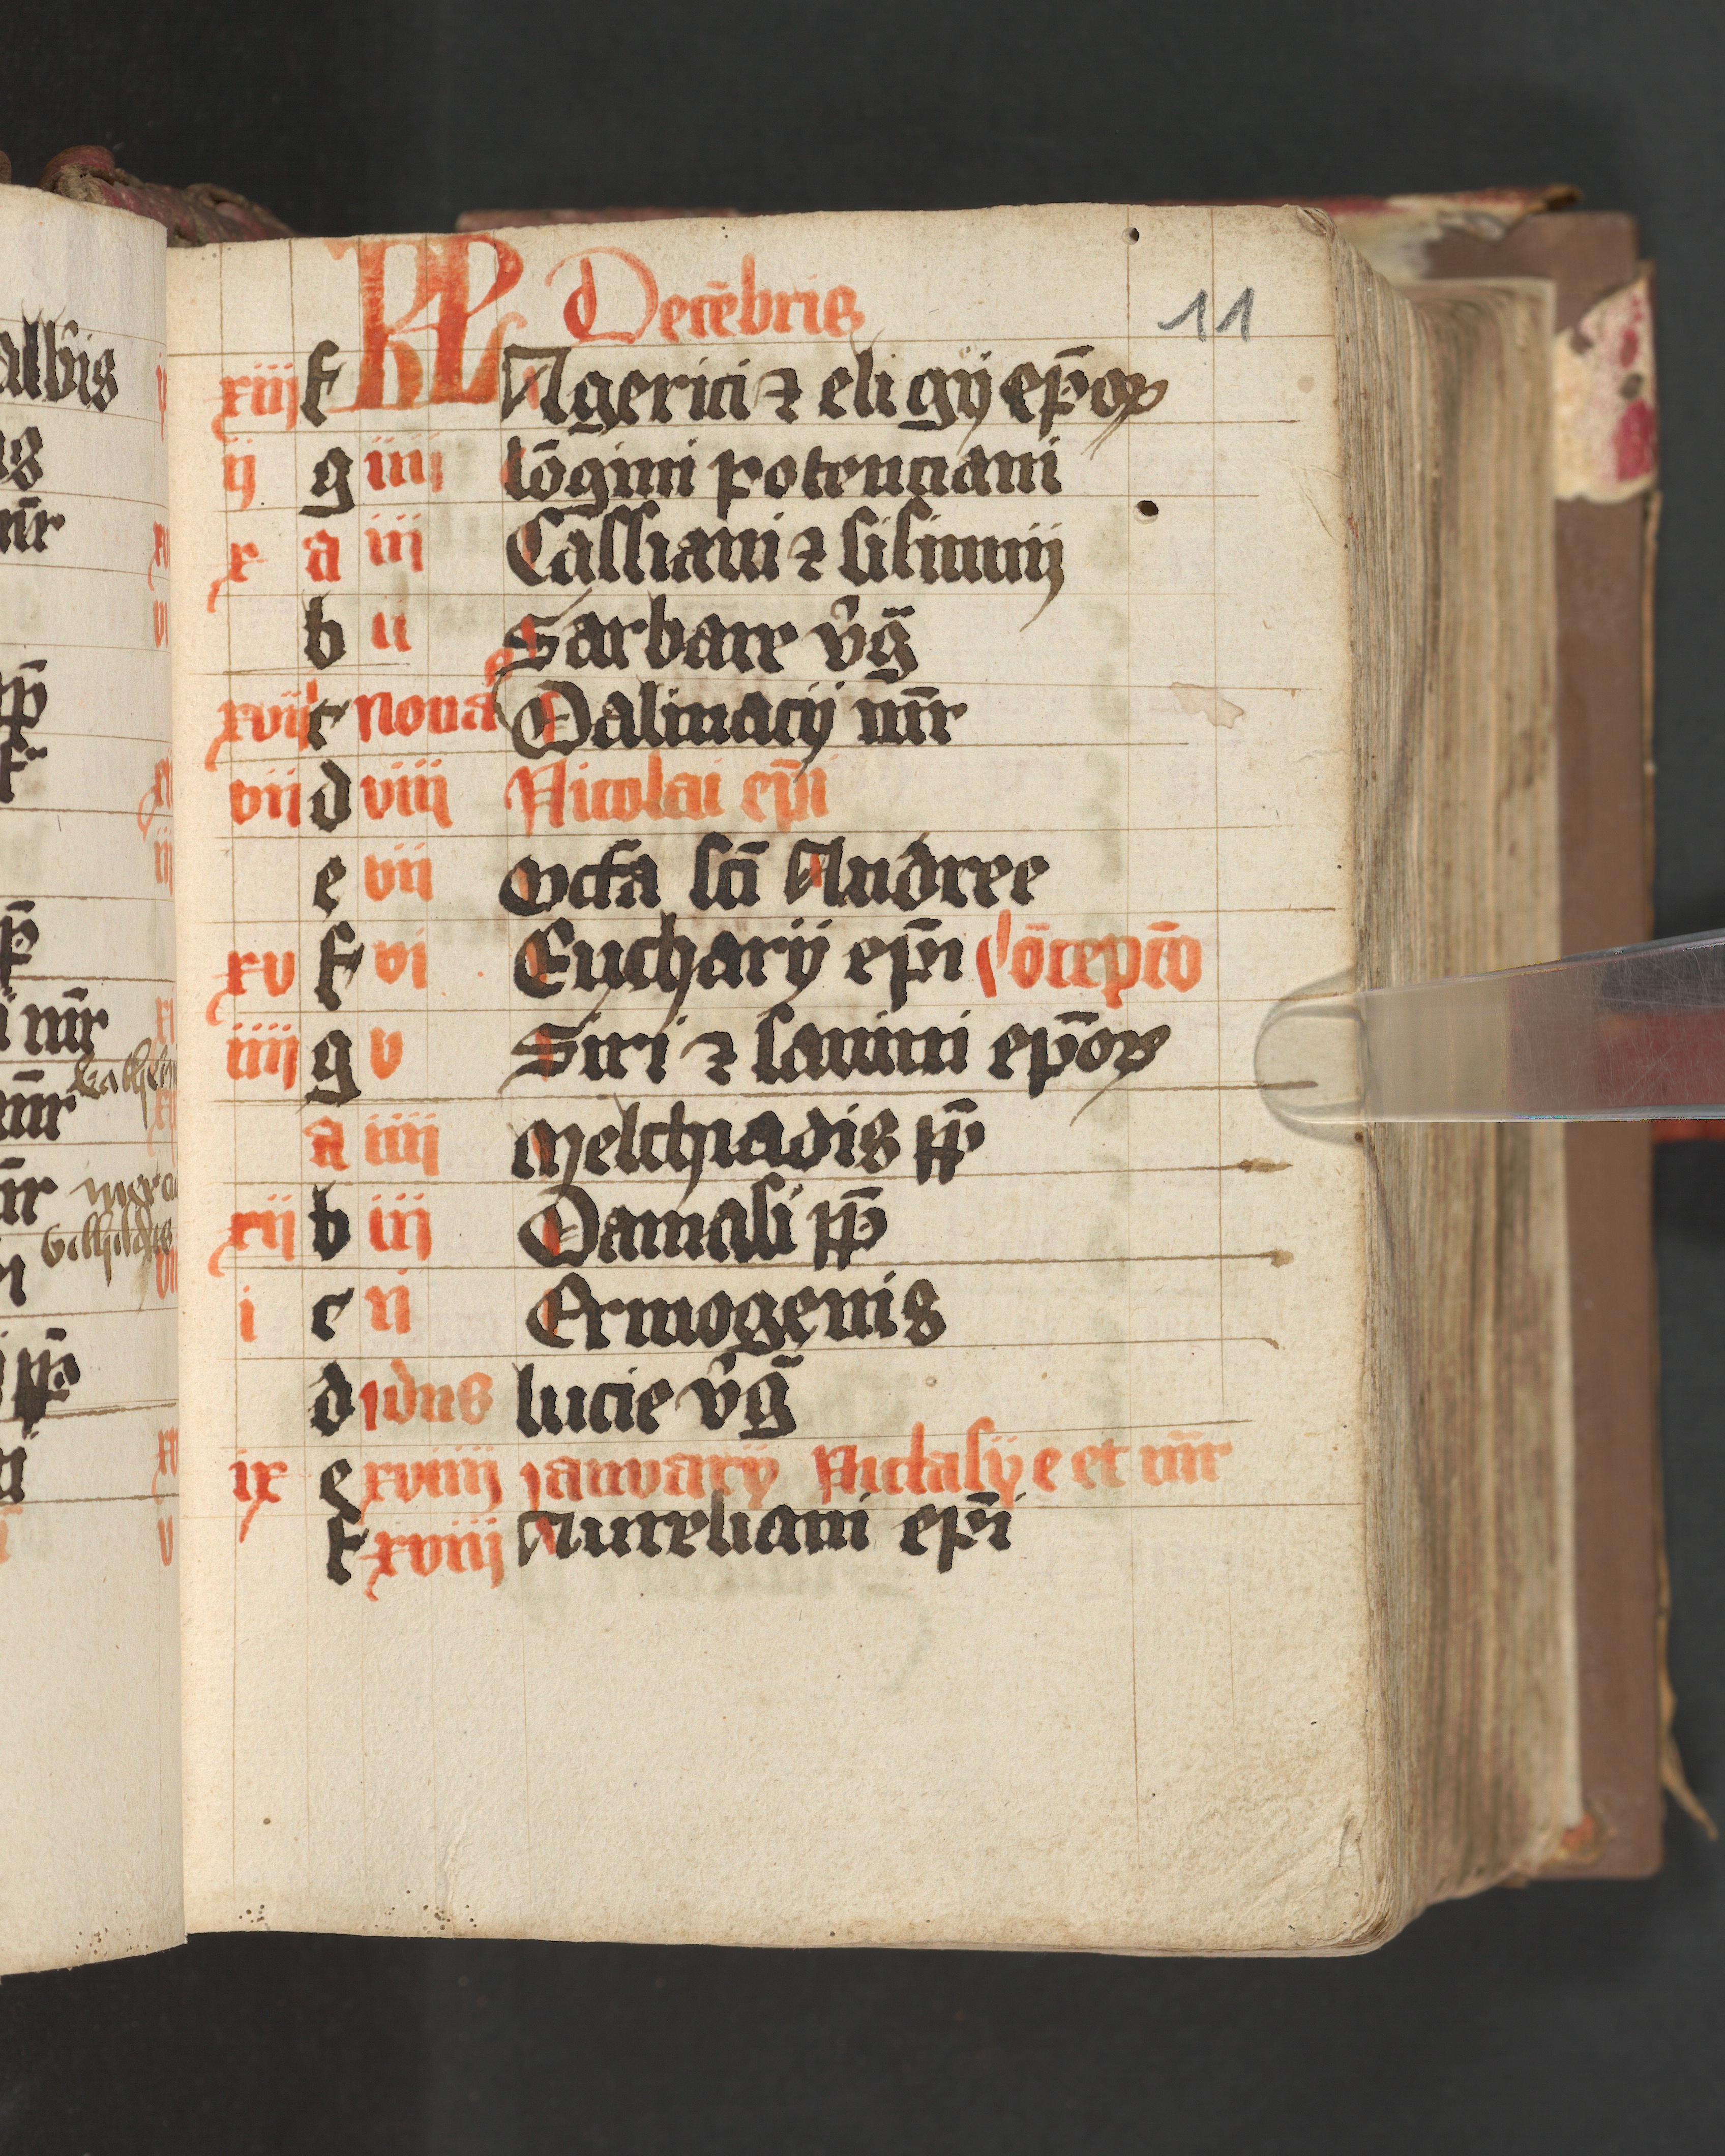 KL Decēbris
11
xiij f Agerici ⁊ eligij ep̄oꝝ
ij g iiij lōgini potenciani
x a iij Cassiani ⁊ silinnij
b ii Barbare v̓ḡ
xvij c nonas Dalmacij mr̄
vii d viii Nicolai ep̄i
e vii Octa sc̄i Andree
xv f vi Eucharij ep̄i Cōcepc̄o
iiij g v Siri ⁊ sauini ep̄oꝝ
a iiii Melchiadis pp̄
xii b iii Damasi pp̄
i c ii Ermogenis
d idus lucie v̓ḡ
ix e xviiij januarij Nichasij e et mr̄
f xviij Aureliani ep̄i